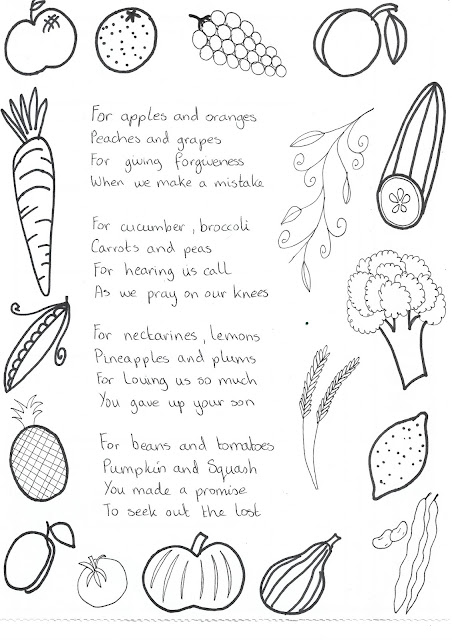 For apples and oranges
Peaches and grapes
For giving forgiveness
When we make a mistake
For cucumber, broccoli
Carrots and peas
For hearing us call
As we pray on our knees
For nectarines, lemons
Pineapples and plums
For loving us so much
You gave up your son
For beans and tomatoes
Pumpkin and Squash
You made a promise
To seek out the lost